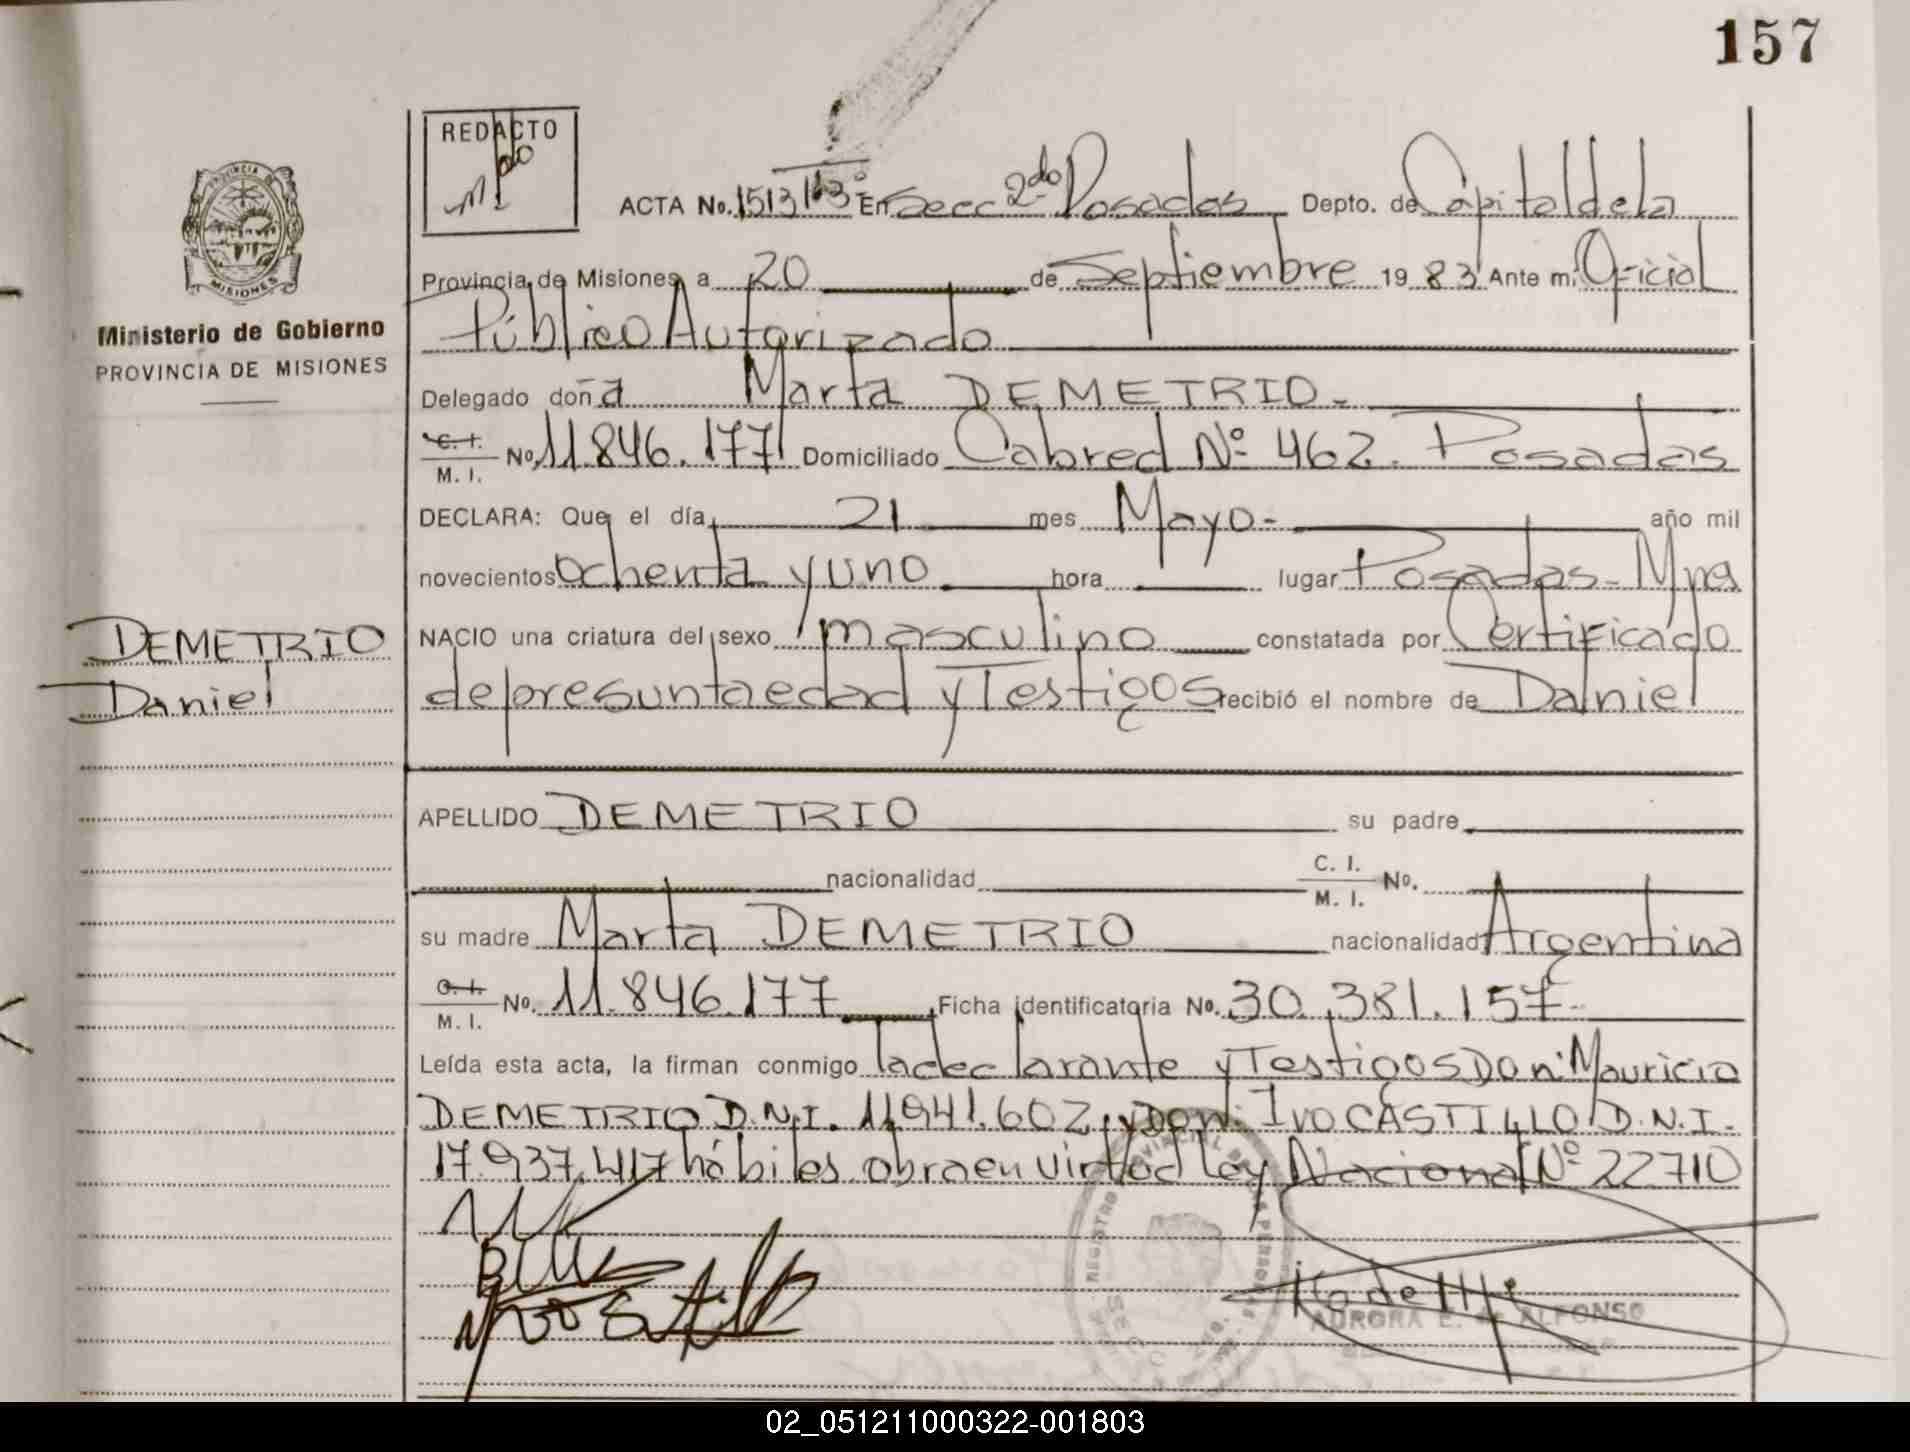 157
REDACTO
PROVINCIA DE
MISIONES
Ministerio de Gobierno
PROVINCIA DE MISIONES
ACTA No. 1513 Tº 3º En Secc 2do Posadas Depto. de Capital de la
Provincia de Misiones a 20 de Septiembre 1983 Ante mi Oficial
Público Autorizado
Delegado doña Marta DEMETRIO.
C. I.
M. I. No. 11.846.177 Domiciliado Cabred Nº 462. Posadas
DECLARA: Que el día 21 mes Mayo- año mil
novecientos ochenta y uno hora lugar Posadas - Mnes
NACIO una criatura del sexo masculino constatada por Certificado
de presunta edad y Testigos recibió el nombre de Daniel
DEMETRIO
Daniel
APELLIDO DEMETRIO su padre
nacionalidad C. I.
M. I. No.
su madre Marta DEMETRIO nacionalidad Argentina
C. I.
M. I. No. 11.846.177 Ficha identificatoria No. 30.381.157-
Leída esta acta, la firman conmigo la declarante y Testigos Don: Mauricio
DEMETRIO D.N.I. 11.941.602, y Don: Ivo CASTILLO D.N.I.
17.937.417 hábiles. obra en virtud ley Nacional Nº 22710
REGISTRO PROVINCIAL DE
AURORA E. de ALFONSO
02_051211000322-001803